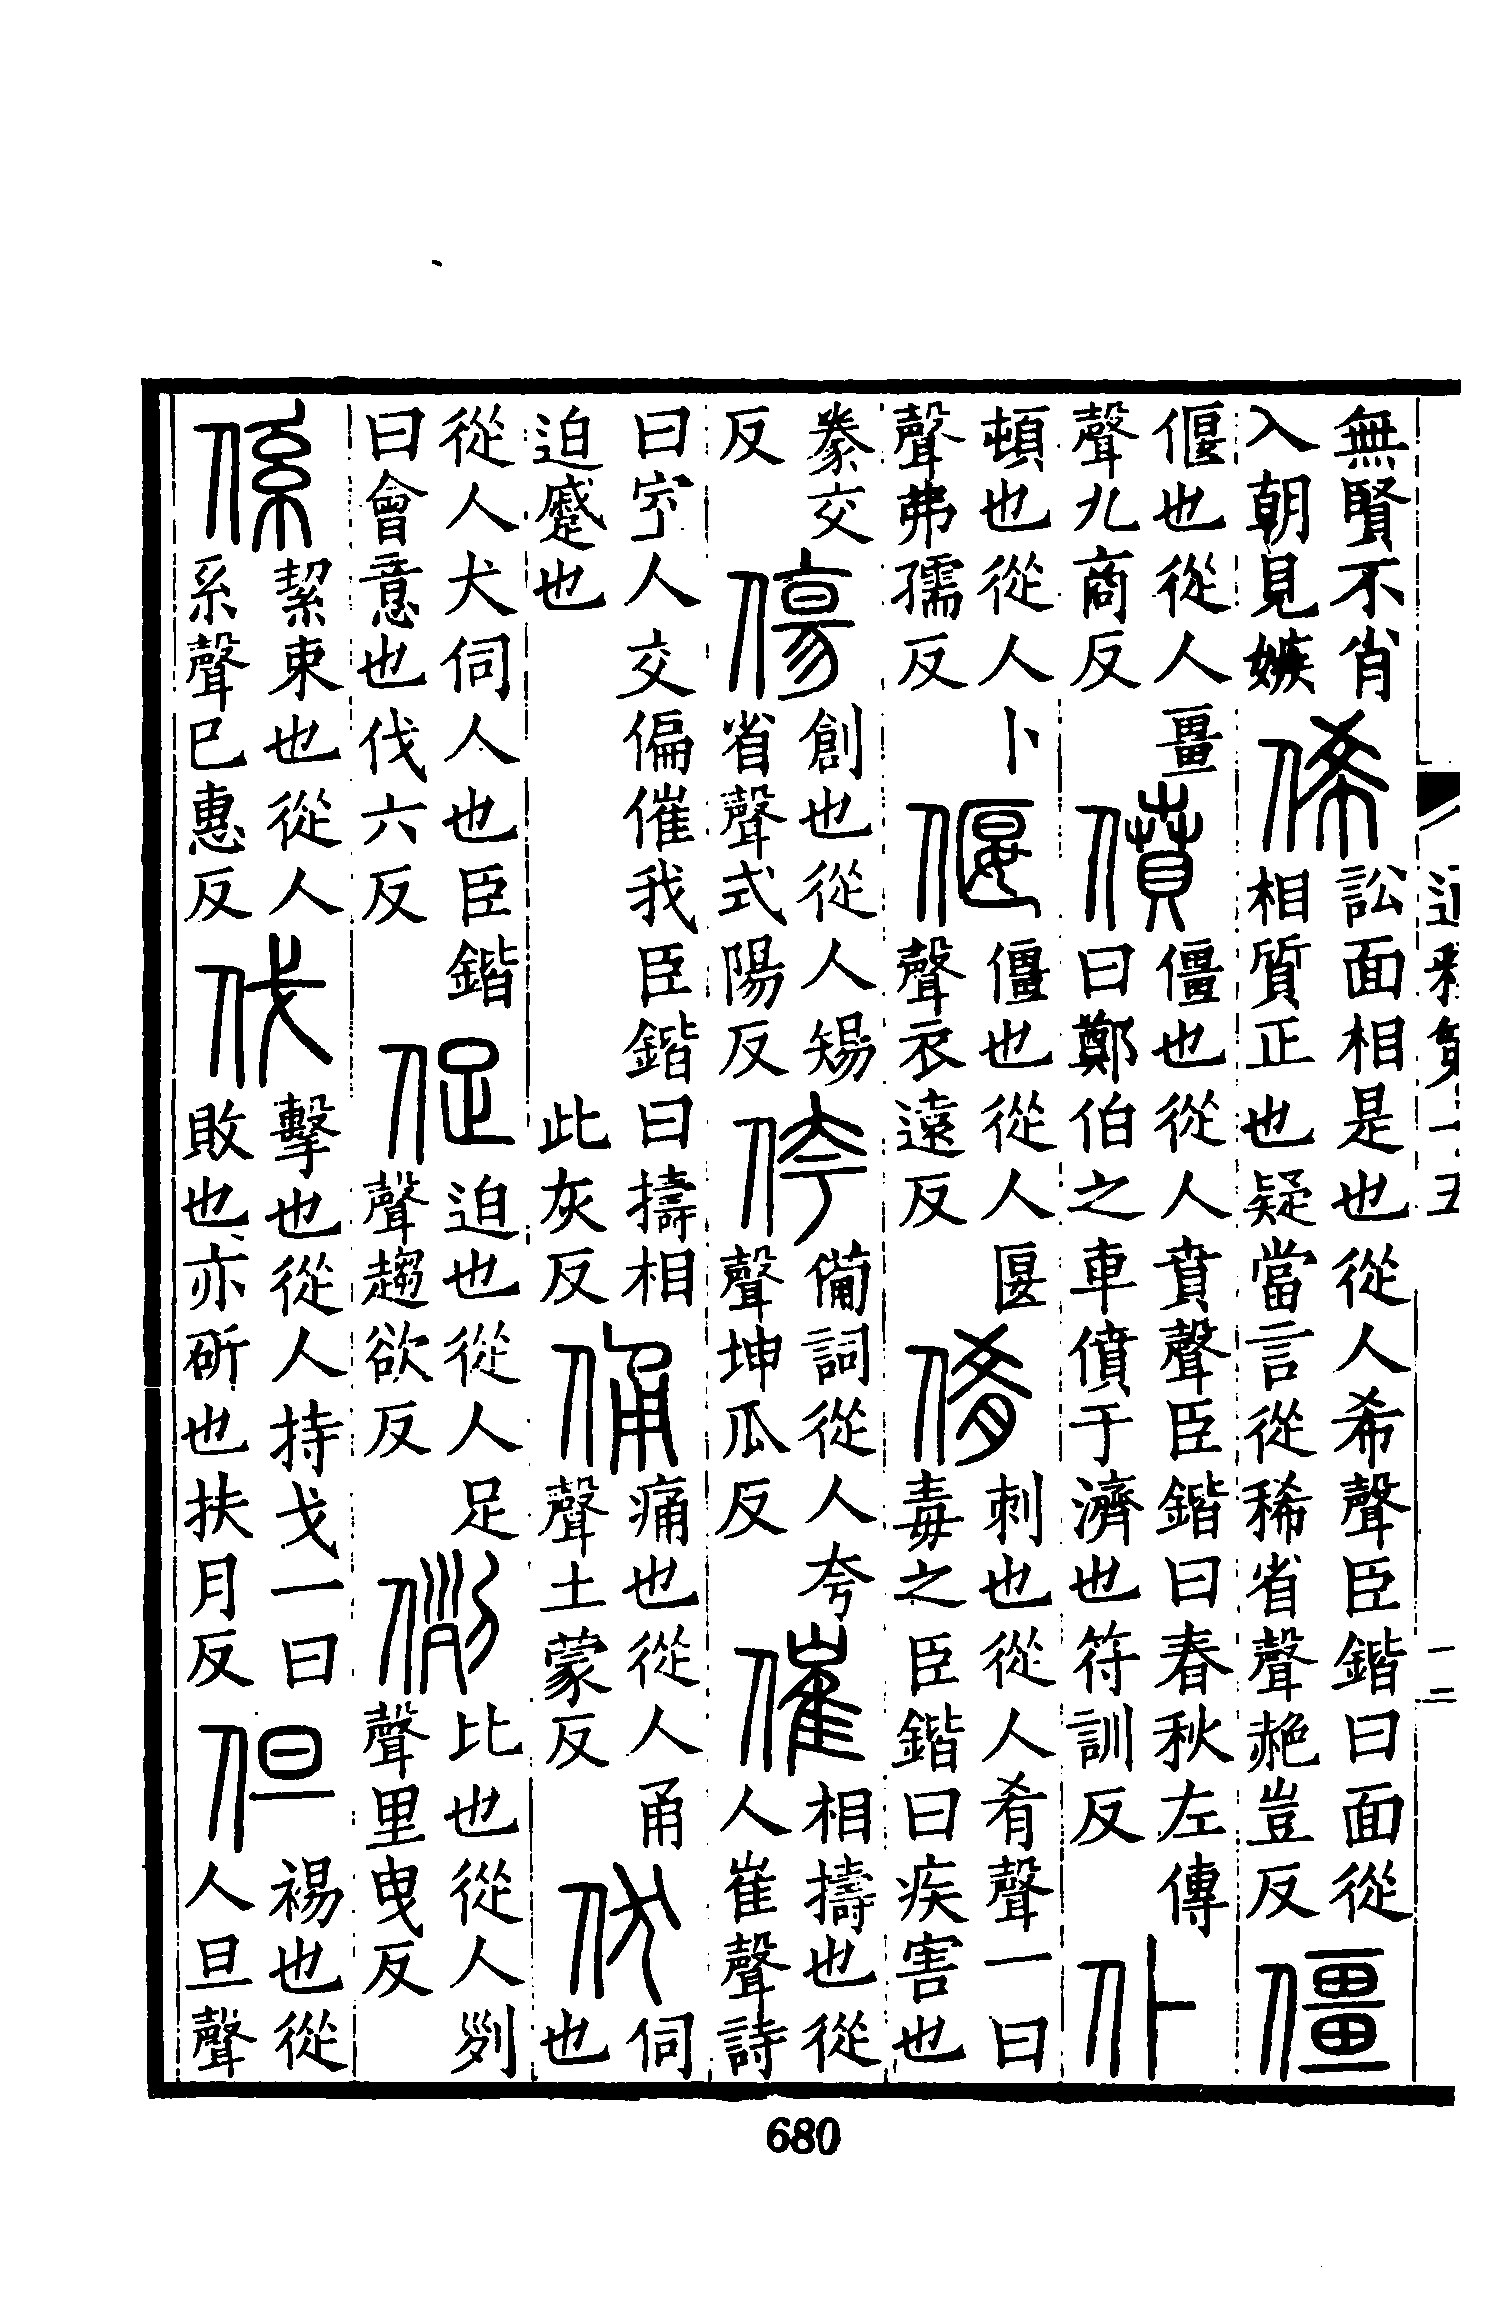 無賢不肖
入朝見嫉
俙
訟面相是也從人希聲臣鍇曰面從
相質正也疑當言從稀省聲赩豈反
僵
偃也從人畺
聲九商反
僨
僵也從人賁聲臣鍇曰春秋左傳
曰鄭伯之車僨于濟也符訓反
仆
頓也從人卜
聲弗孺反
偃
僵也從人匽
聲衣遠反
倄
刺也從人肴聲一曰
毒之臣鍇曰疾害也
豢交
反
傷
創也從人𥏻
省聲式陽反
侉
備詞從人夸
聲坤瓜反
催
相擣也從
人崔聲詩
曰人交偏催我臣鍇曰擣相
迫蹙也　此灰反
俑
痛也從人甬
聲土蒙反
伏
伺
也
從人犬伺人也臣鍇
曰會意也伐六反
促
迫也從人足
聲趨欲反
例
比也從人列
聲里曳反
係
絜束也從人
系聲巳惠反
伐
擊也從人持戈一曰
敗也亦斫也扶月反
但
裼也從
人旦聲
680